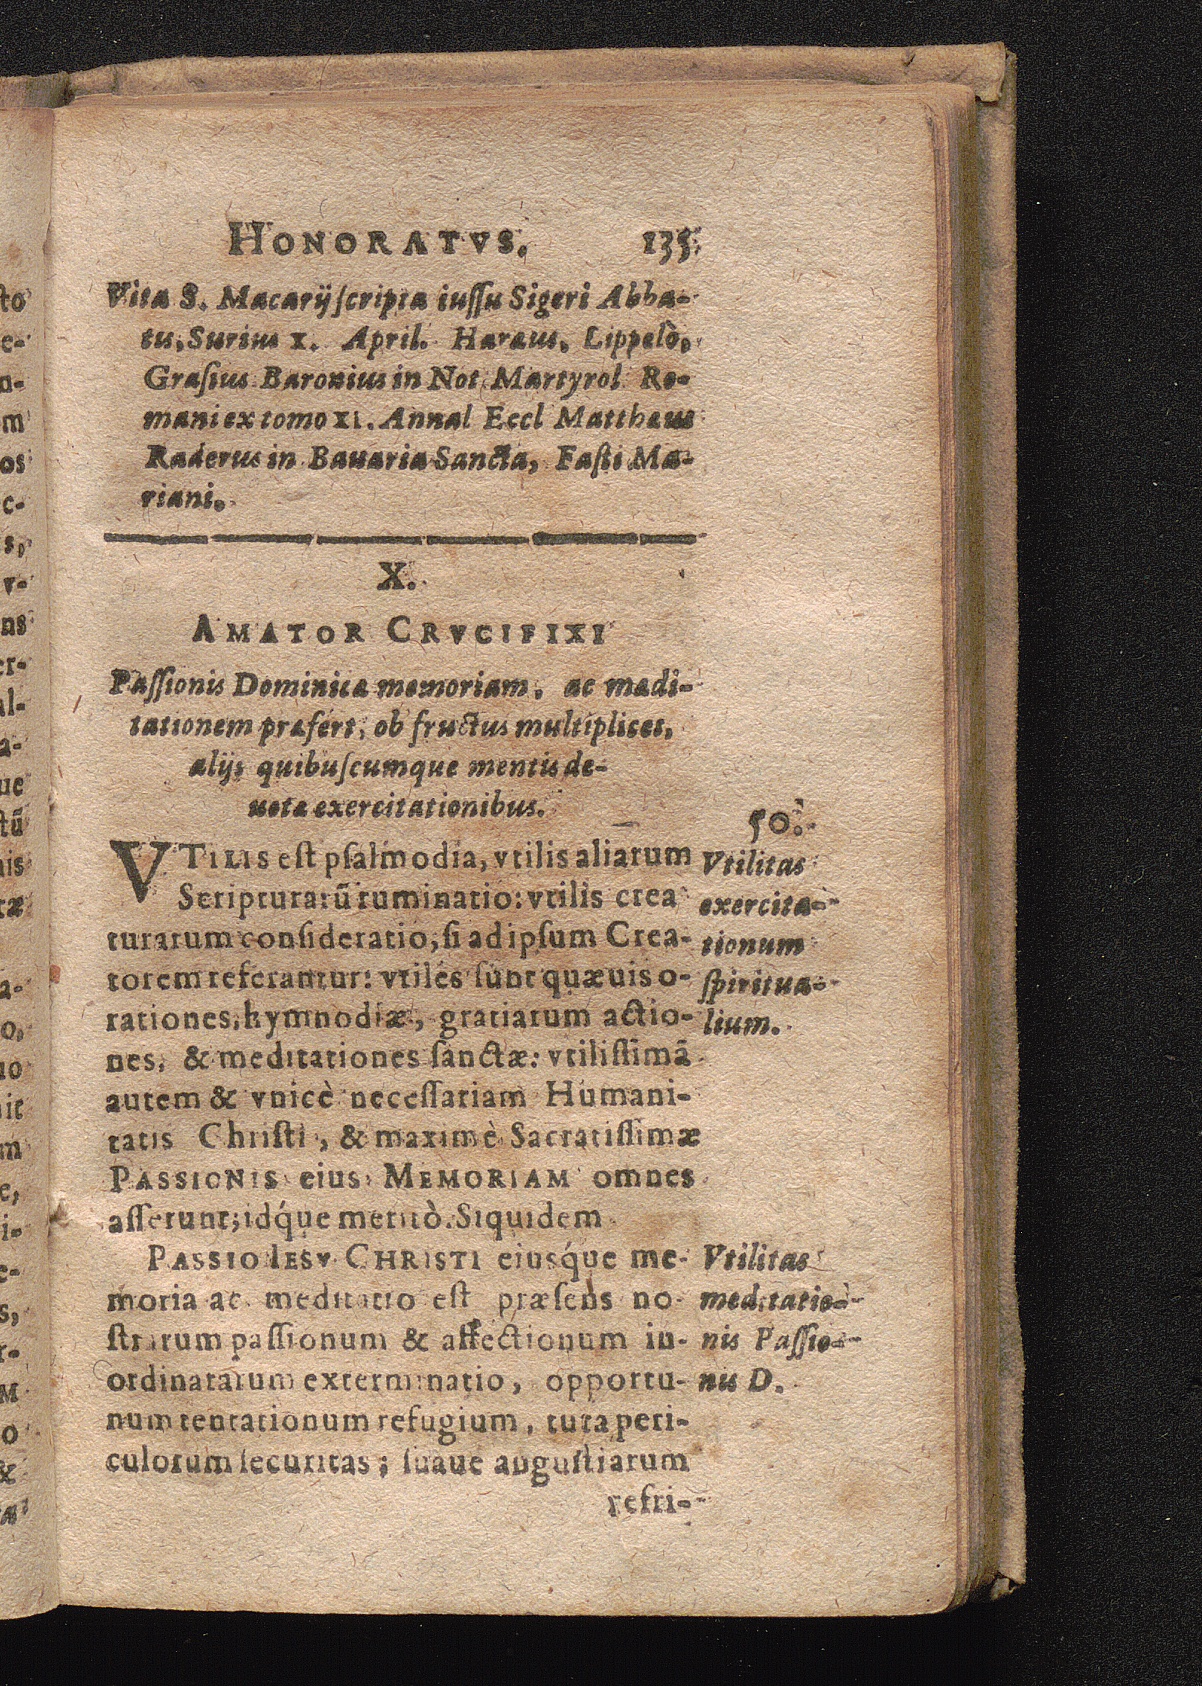 HONORATVS. 135.
Vita S. Macarij scripta iussu Sigeri Abba-
tis, Surius x. April. Haræus, Lippelò,
Grasius Baronius in Not. Martyrol. Ro-
mani ex tomo XI. Annal Eccl Matthæus
Raderus in Bauaria Sancta, Fasti Ma-
riani.
X.
AMATOR CRVCIFIXI
Passionis Dominicæ memoriam, ac medi-
tationem præfert, ob fructus multiplices,
alijs quibuscumque mentis de-
uotæ exercitationibus.
VTILIS est psalmodia, vtilis aliarum
Scripturarū ruminatio: vtilis crea
turarum consideratio, si ad ipsum Crea-
torem referantur: vtiles sunt quæuis o-
rationes, hymnodiæ, gratiarum actio-
nes, & meditationes sanctæ: vtilissimā
autem & vnicè necessariam Humani-
tatis Christi, & maximè Sacratissimæ
PASSIONIS eius MEMORIAM omnes
asserunt; idq́ue meritò. Siquidem
PASSIO IESV CHRISTI eiusq́ue me-
moria ac meditatio est præsens no-
strarum passionum & affectionum in-
ordinatarum exterminatio, opportu-
num tentationum refugium, tuta peri-
culorum securitas; suaue angustiarum
refri-
50.
Vtilitas
exercita-
tionum
spiritua-
lium.
Vtilitas
meditatio-
nis Passio-
nis D.